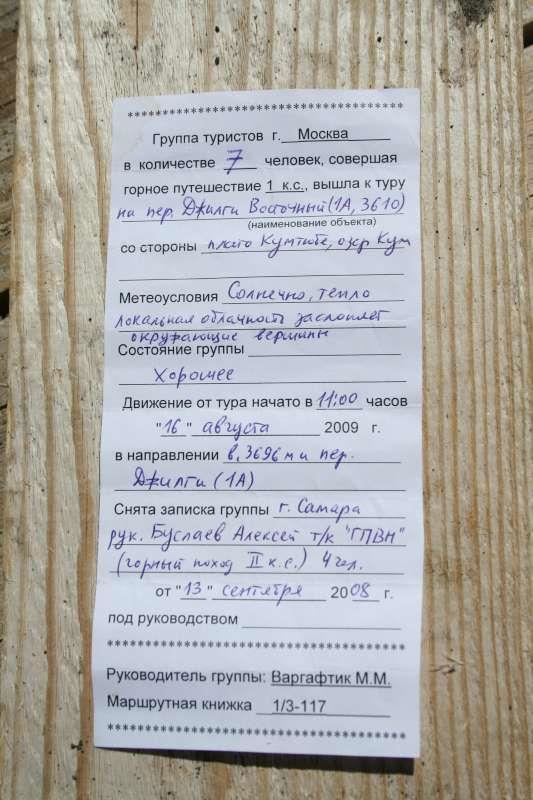 ************************************
Группа туристов г. Москва
в количестве 7 человек, совершая
горное путешествие 1 к.с., вышла к туру
на пер. Джилги Восточный (1А, 3610)
(наименование объекта)
со стороны плато Кумтюбе, окр. Кум
Метеоусловия Солнечно, тепло
локальная облачность заслоняет
окружающие вершины
Состояние группы
хорошее
Движение от тура начато в 11:00 часов
"16" августа 2009 г.
в направлении в. 3696 м и пер.
Джилги (1А)
Снята записка группы г. Самара
рук. Буслаев Алексей т/к "ГПВН"
(горный поход II к.с.) 4 чел.
от "13" сентября 2008 г.
под руководством
************************************
Руководитель группы: Варгафтик М.М.
Маршрутная книжка 1/3-117
************************************